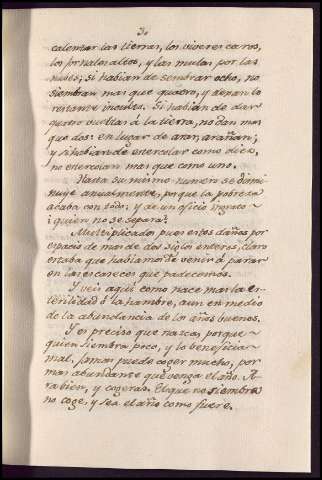 30
calentar las tierras, los viveres caros,
los jornales altos, y las mulas por las
nubes; si habian de sembrar ocho, no
siembran mas que quatro, y dexan lo
restante inculto. Si habian de dar
quatro vueltas á la tierra, no dan mas
que dos: en lugar de arar, arañan;
y si habian de estercolar como diez,
no estercolan mas que como uno.
Hasta su mismo numen se dismi
nuye anualmente, porque la pobreza
acaba con todo: y de un oficio ingrato
¿quien no se separa?
Multiplicados pues estos daños por
espacio de mas de dos siglos enteros, claro
estaba que habiamos de venir á parar
en las escaseces que padecemos.
Y veis aqui como nace mas la es
terilidad ó la hambre, aun en medio
de la abundancia de los años buenos.
Y es preciso que nazca, porque
quien siembra poco, y lo beneficia
mal, jamas puede coger mucho, por
mas abundante que venga el año. A
ra bien, y cogeras. El que no siembra
no coge, y sea el año como fuere.